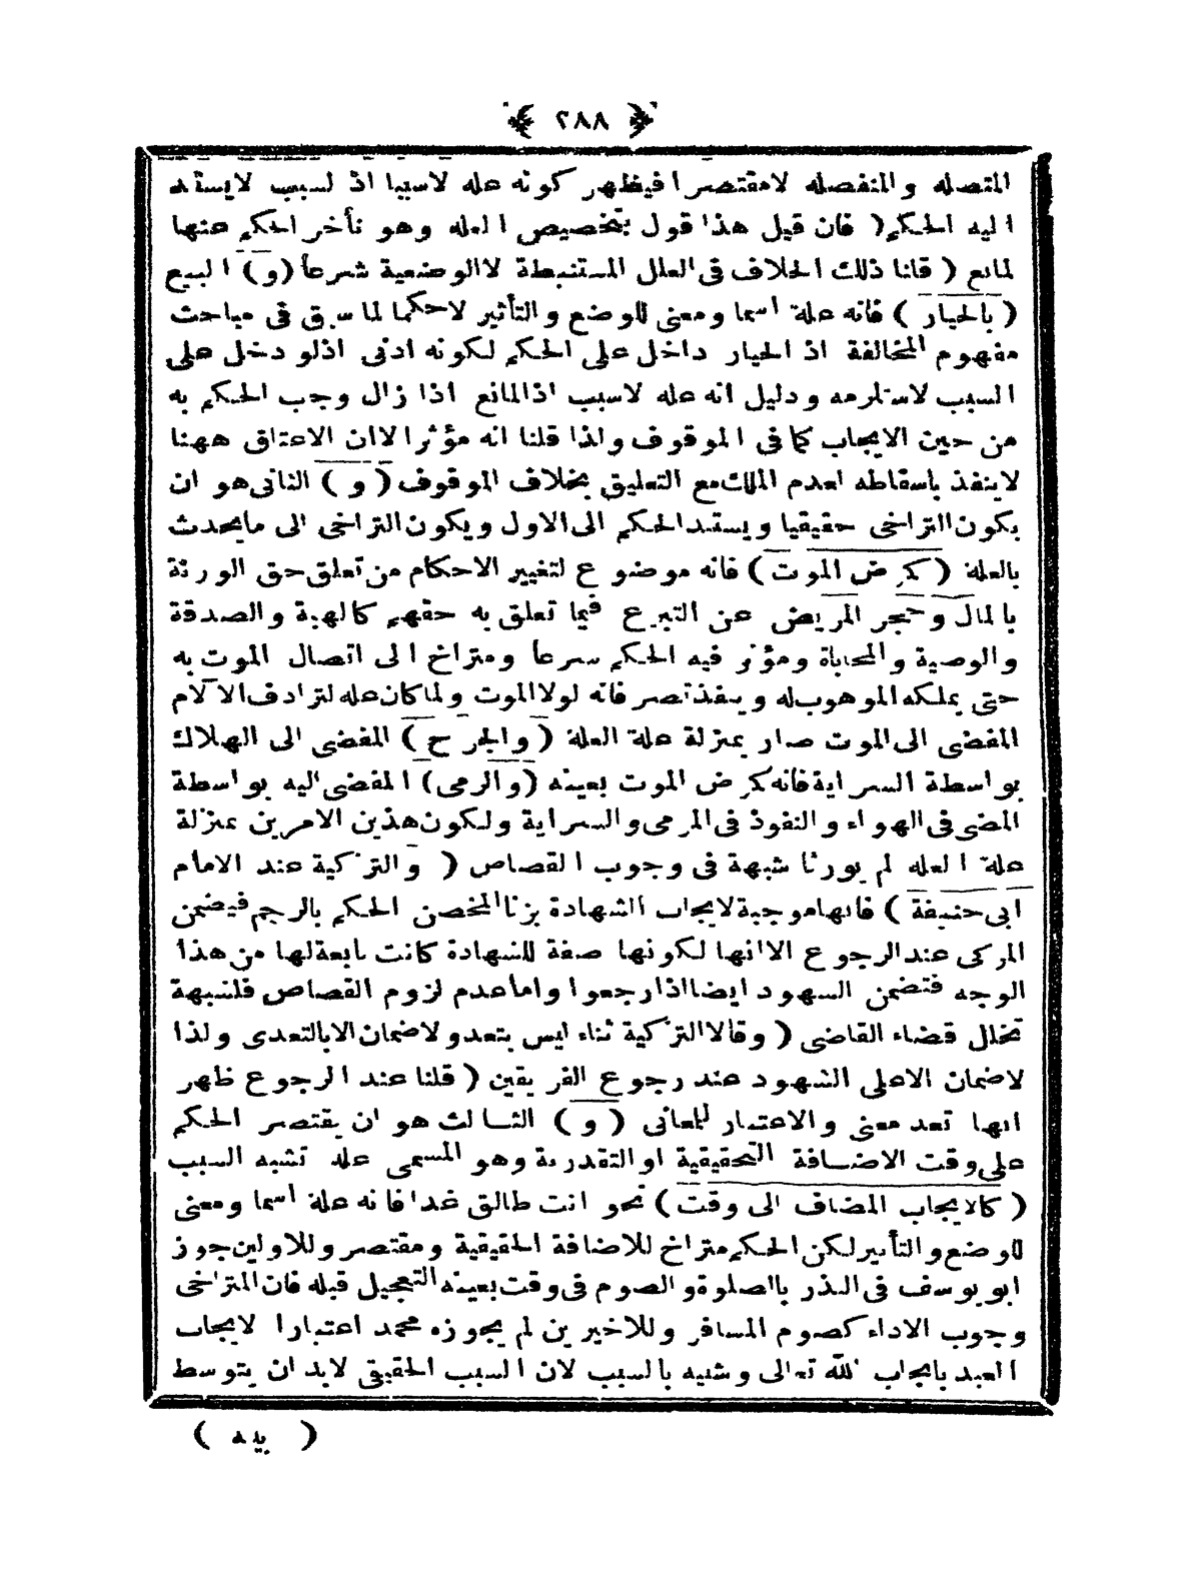 ﴿ ٢٨٨ ﴾
المتصله والمنفصله لامقتصرا فيظهر كونه عله لاسببا اذ لسبب لايستند
اليه الحكم ( فان قيل هذا قول بتخصيص العله وهو تأخر الحكم عنها
لمانع ( قلنا ذلك الخلاف فى العلل المستنبطة لاالوضعية شرعا (و) البيع
( بالخيار ) فانه علة اسما ومعنى للوضع والتأثير لاحكما لما سبق فى مباحث
مفهوم المخالفة اذ الخيار داخل على الحكم لكونه ادنى اذلو دخل على
السبب لاستلزمه ودليل انه عله لاسبب اذالمانع اذا زال وجب الحكم به
من حين الايجاب كما فى الموقوف ولذا قلنا انه مؤثرا لاان الاعتاق ههنا
لاينفذ باسقاطه لعدم الملك مع التعليق بخلاف الموقوف ( و ) الثانى هو ان
يكون التراخى حقيقيا ويستند الحكم الى الاول ويكون التراخى الى مايحدث
بالعلة ( كمرض الموت ) فانه موضوع لتغيير الاحكام من تعلق حق الورثة
بالمال وحجر المريض عن التبرع فيما تعلق به حقهم كالهبة والصدقة
والوصية والمحاباة ومؤثر فيه الحكم شرعا ومتراخ الى اتصال الموت به
حتى يملكه الموهوب له وينفذ تصرفاته لولا الموت ولما كان عله لترادف الآلام
المفضى الى الموت صار بمنزلة علة العلة ( والجرح ) المفضى الى الهلاك
بواسطة السراية فانه كمرض الموت بعينه ( والرمى ) المفضى اليه بواسطة
المضى فى الهواء والنفوذ فى المرمى والسراية ولكون هذين الامرين بمنزلة
علة العله لم يورثا شبهة فى وجوب القصاص ( والتزكية عند الامام
ابى حنيفة ) فانها موجبة لايجاب الشهادة بزنا المحصن الحكم بالرجم فيضمن
المزكى عند الرجوع الاانها لكونها صفة للشهادة كانت تابعة لها من هذا
الوجه فتضمن الشهود ايضا اذا رجعوا واما عدم لزوم القصاص فلشبهة
تخلل قضاء القاضى ( وقالا التزكية ثناء ليس بتعد ولاضمان الابالتعدى ولذا
لاضمان الاعلى الشهود عند رجوع الفريقين ( قلنا عند الرجوع ظهر
انها تعد معنى والاعتبار للمعانى ( و ) الثالث هو ان يقتصر الحكم
على وقت الاضافة التحقيقية او التقديرية وهو المسمى علة تشبه السبب
( كالايجاب المضاف الى وقت ) نحو انت طالق غدا فانه علة اسما ومعنى
للوضع والتأثير لكن الحكم متراخ للاضافة الحقيقية ومقتصر وللاولين جوز
ابو يوسف فى النذر بالصلوة والصوم فى وقت بعينه التعجيل قبله فان المتراخى
وجوب الاداء كصوم المسافر وللاخيرين لم يجوزه محمد اعتبارا لايجاب
العبد بايجاب الله تعالى وشبيه بالسبب لان السبب الحقيقى لابد ان يتوسط